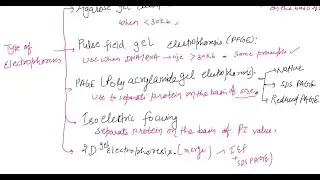 Agarose gel
when <30Kb
Type of Electrophoresis
Pulse field gel Electrophoresis (PFGE):
use when DNA/RNA size >30Kb. Some principle
PAGE (Poly acrylamide gel electrophoresis)
use to separate protein on the basis of size.
Native
SDS PAGE
Reduced PAGE
Iso electric focusing
separate protein on the basis of PI value.
2D gel electrophoresis. (merge)
IEF
+ SDS PAGE